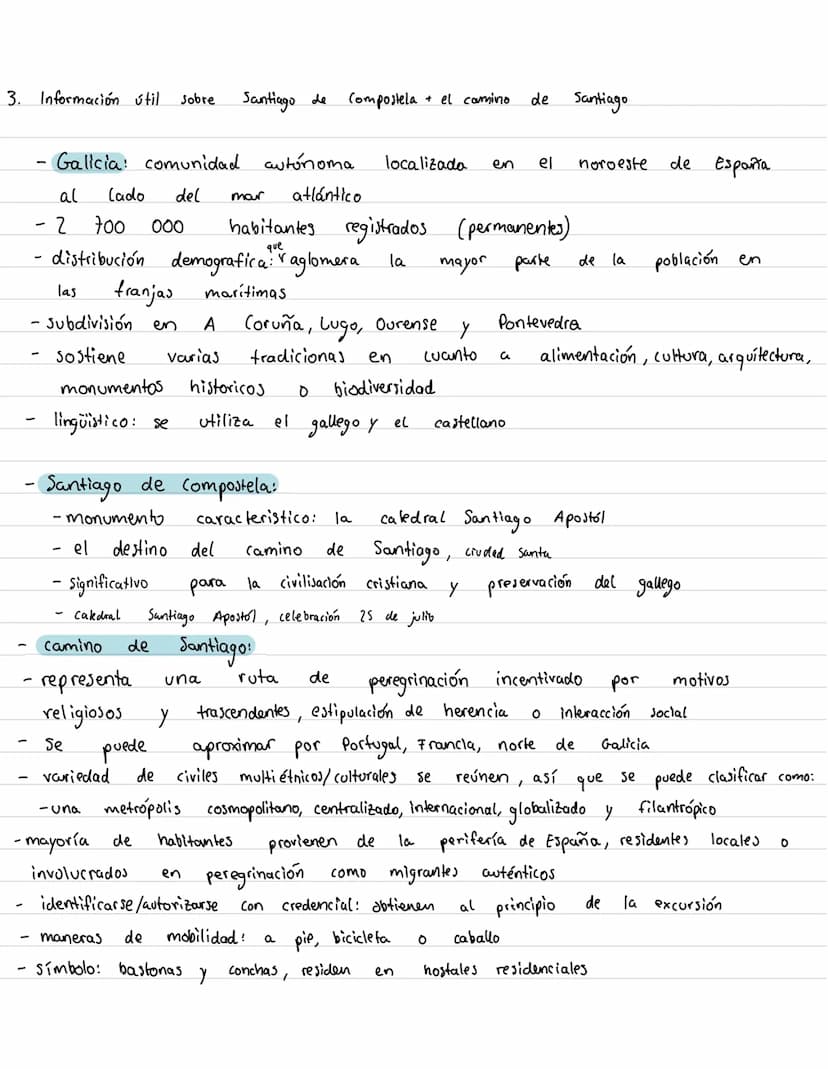 3. Información útil sobre Santiago de Compostela + el camino de Santiago
- Galicia: comunidad autónoma localizada en el noroeste de España
al lado del mar atlántico
- 2 700 000 habitantes registrados (permanentes)
- distribución demografica: que aglomera la mayor parte de la población en
las franjas marítimas
- subdivisión en A Coruña, Lugo, Ourense y Pontevedra
- sostiene varias tradicionas en cuanto a alimentación, cultura, arquitectura,
monumentos historicos o biodiversidad
- lingüistico: se utiliza el gallego y el castellano
- Santiago de Compostela:
- monumento caracteristico: la catedral Santiago Apostól
- el destino del camino de Santiago, ciudad santa
- significativo para la civilisación cristiana y preservación del gallego
- catedral Santiago Apostól, celebración 25 de julio
- camino de Santiago:
- representa una ruta de peregrinación incentivado por motivos
religiosos y trascendentes, estipulación de herencia o interacción social
- Se puede aproximar por Portugal, Francia, norte de Galicia
- variedad de civiles multiétnicos/culturales se reúnen, así que se puede clasificar como:
- una metrópolis cosmopolitano, centralizado, internacional, globalizado y filantrópico
- mayoría de habitantes provienen de la perifería de España, residentes locales o
involucrados en peregrinación como migrantes auténticos
- identificarse/autorizarse con credencial: obtienen al principio de la excursión
- maneras de mobilidad: a pie, bicicleta o caballo
- símbolo: bastonas y conchas, residen en hostales residenciales